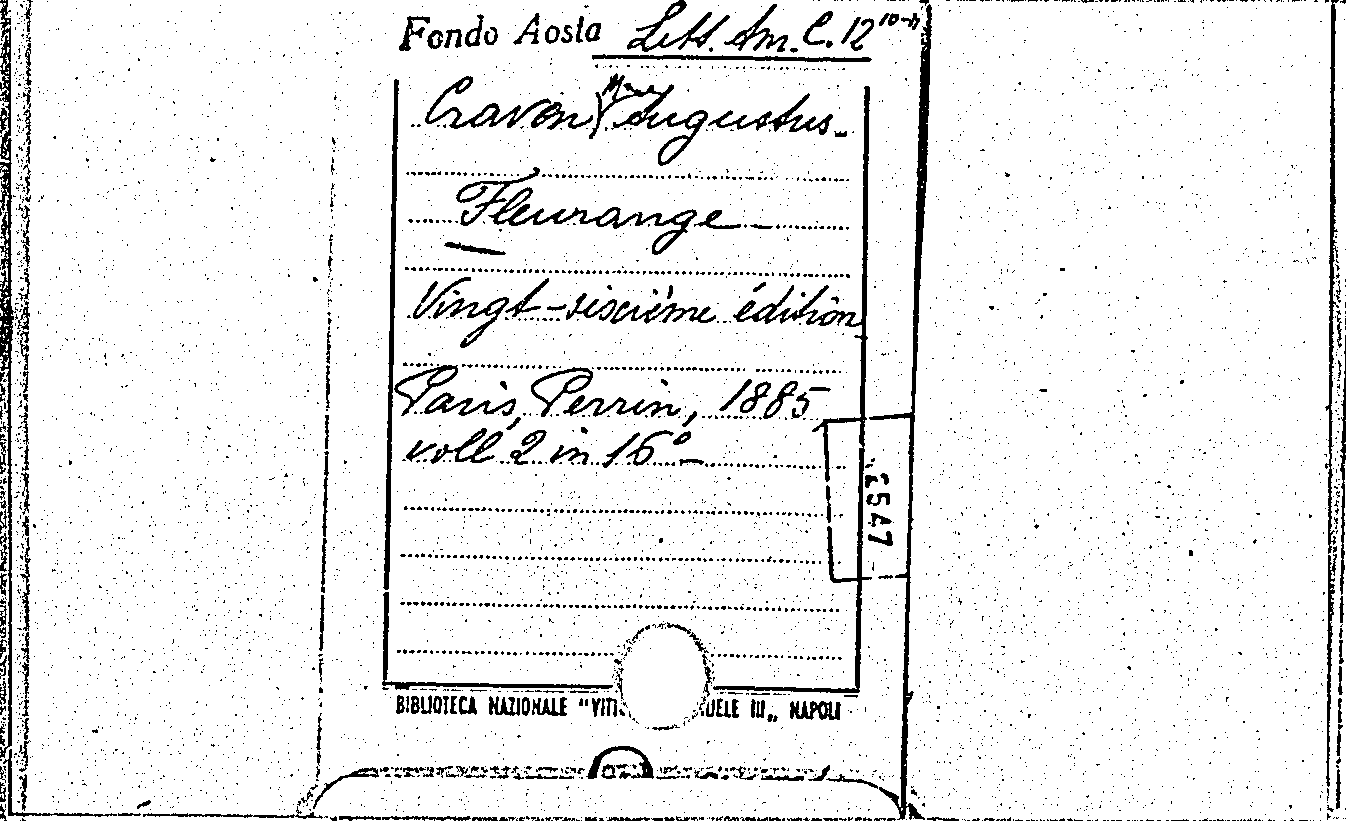 Fondo Aosta Lett. Am. C. 12 10-11
Craven Mme Augustus.
Fleurange
Vingt-sixième édition
Paris, Perrin, 1885
voll 2 in 16° -
BIBLIOTECA NAZIONALE "VITT DELE III„ NAPOLI